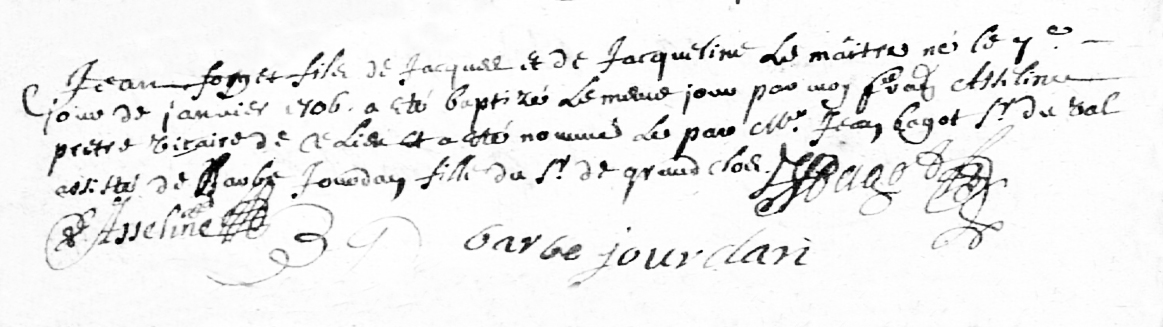 Jean forget fils de Jacques et de Jacqueline Le maitre né le 7e
jour de janvier 1706. a eté baptizé Le meme jour par moy fr Asseline
pretre vicaire de ce Lieu et a eté nommé Le par Mr. Jean Cagot Sr. du val
assisté de Barbe Jourdan fille du Sr. de grand clos.
Asseline
barbe jourdan